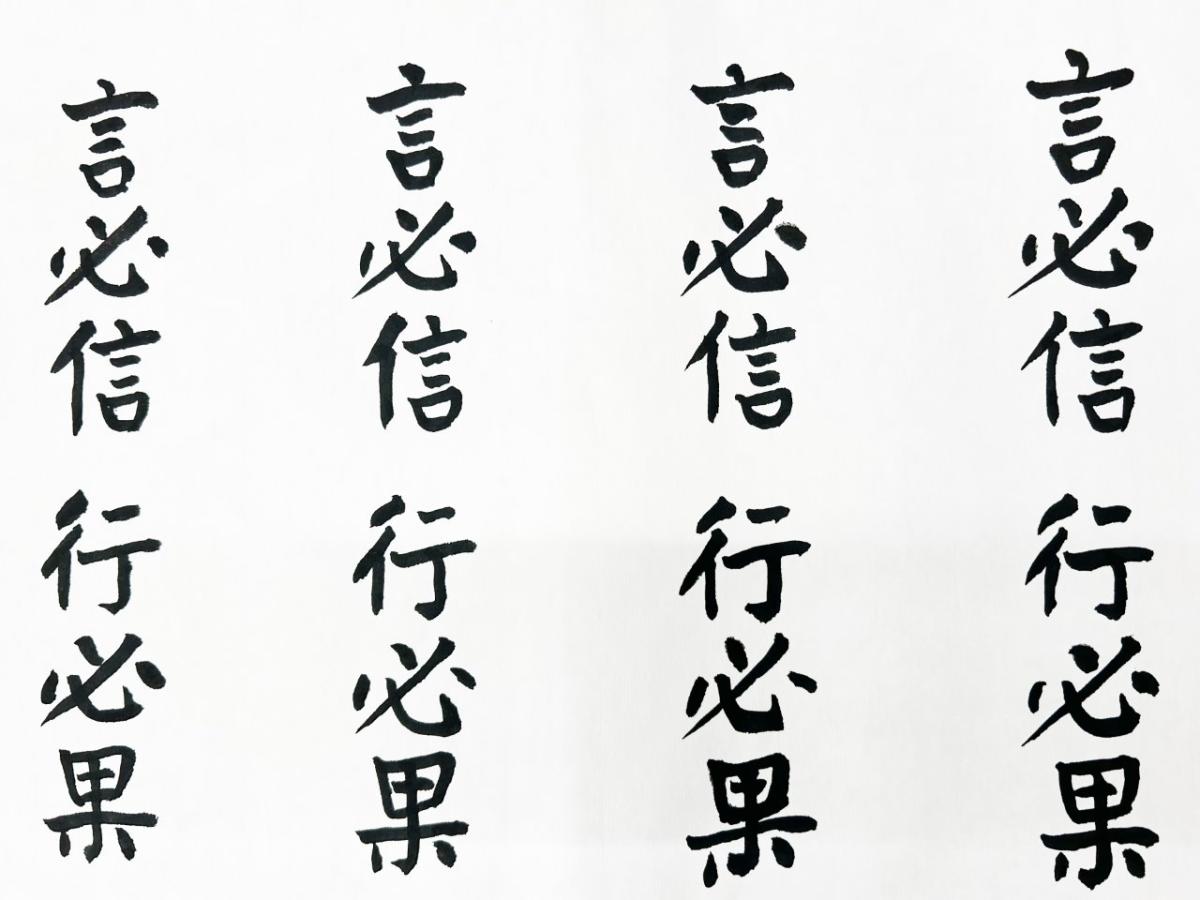 言必信行必果
言必信行必果
言必信行必果
言必信行必果